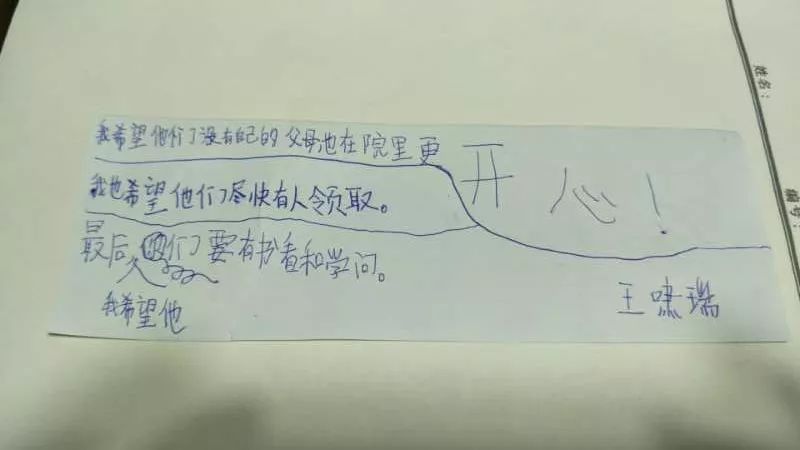 我希望他们了没有自己的父母也在院里更开心！
我也希望他们了尽快有人领取。
最后们了要有书看和学问。
我希望他
王啸瑞
姓名：
编号：